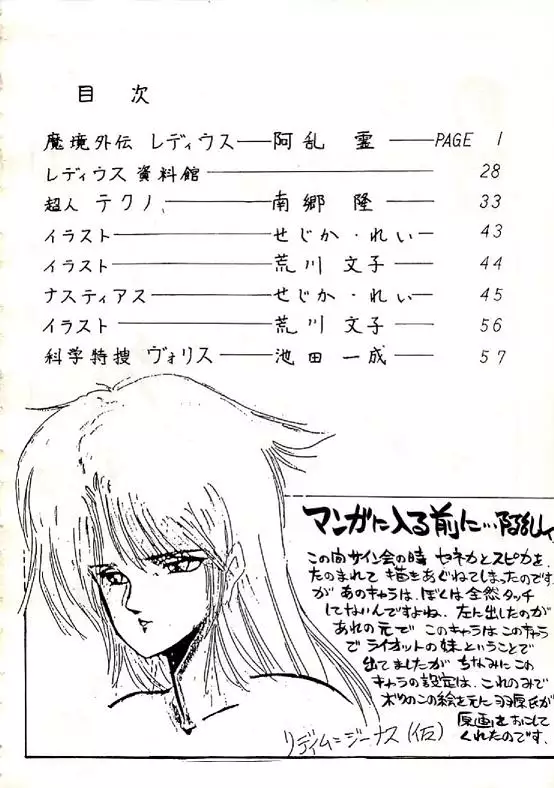 目 次
魔境外伝 レディウス 阿乱 霊 PAGE 1
レディウス資料館 28
超人 テクノ 南郷 隆 33
イラスト せじか・れい 43
イラスト 荒川 文子 44
ナスティアス せじか・れい 45
イラスト 荒川 文子 56
科学特捜 ヴォリス 池田 一成 57
マンガに入る前に…阿乱
この向サイン会の時 セネカとスピカを
たのまれて 描きあぐねてしまったのです
が あのキャラは、ぼくは全然タッチ
してないんですよね、左に出したのが
あれの元で このキャラは このキャラ
で ライオットの妹ということで
出てましたが ちなみにこの
キャラの設定は、これのみで
ボクのこの絵を元に 羽原氏が
原画をおこして
くれたのです.
リディム=ジーナス(仮)